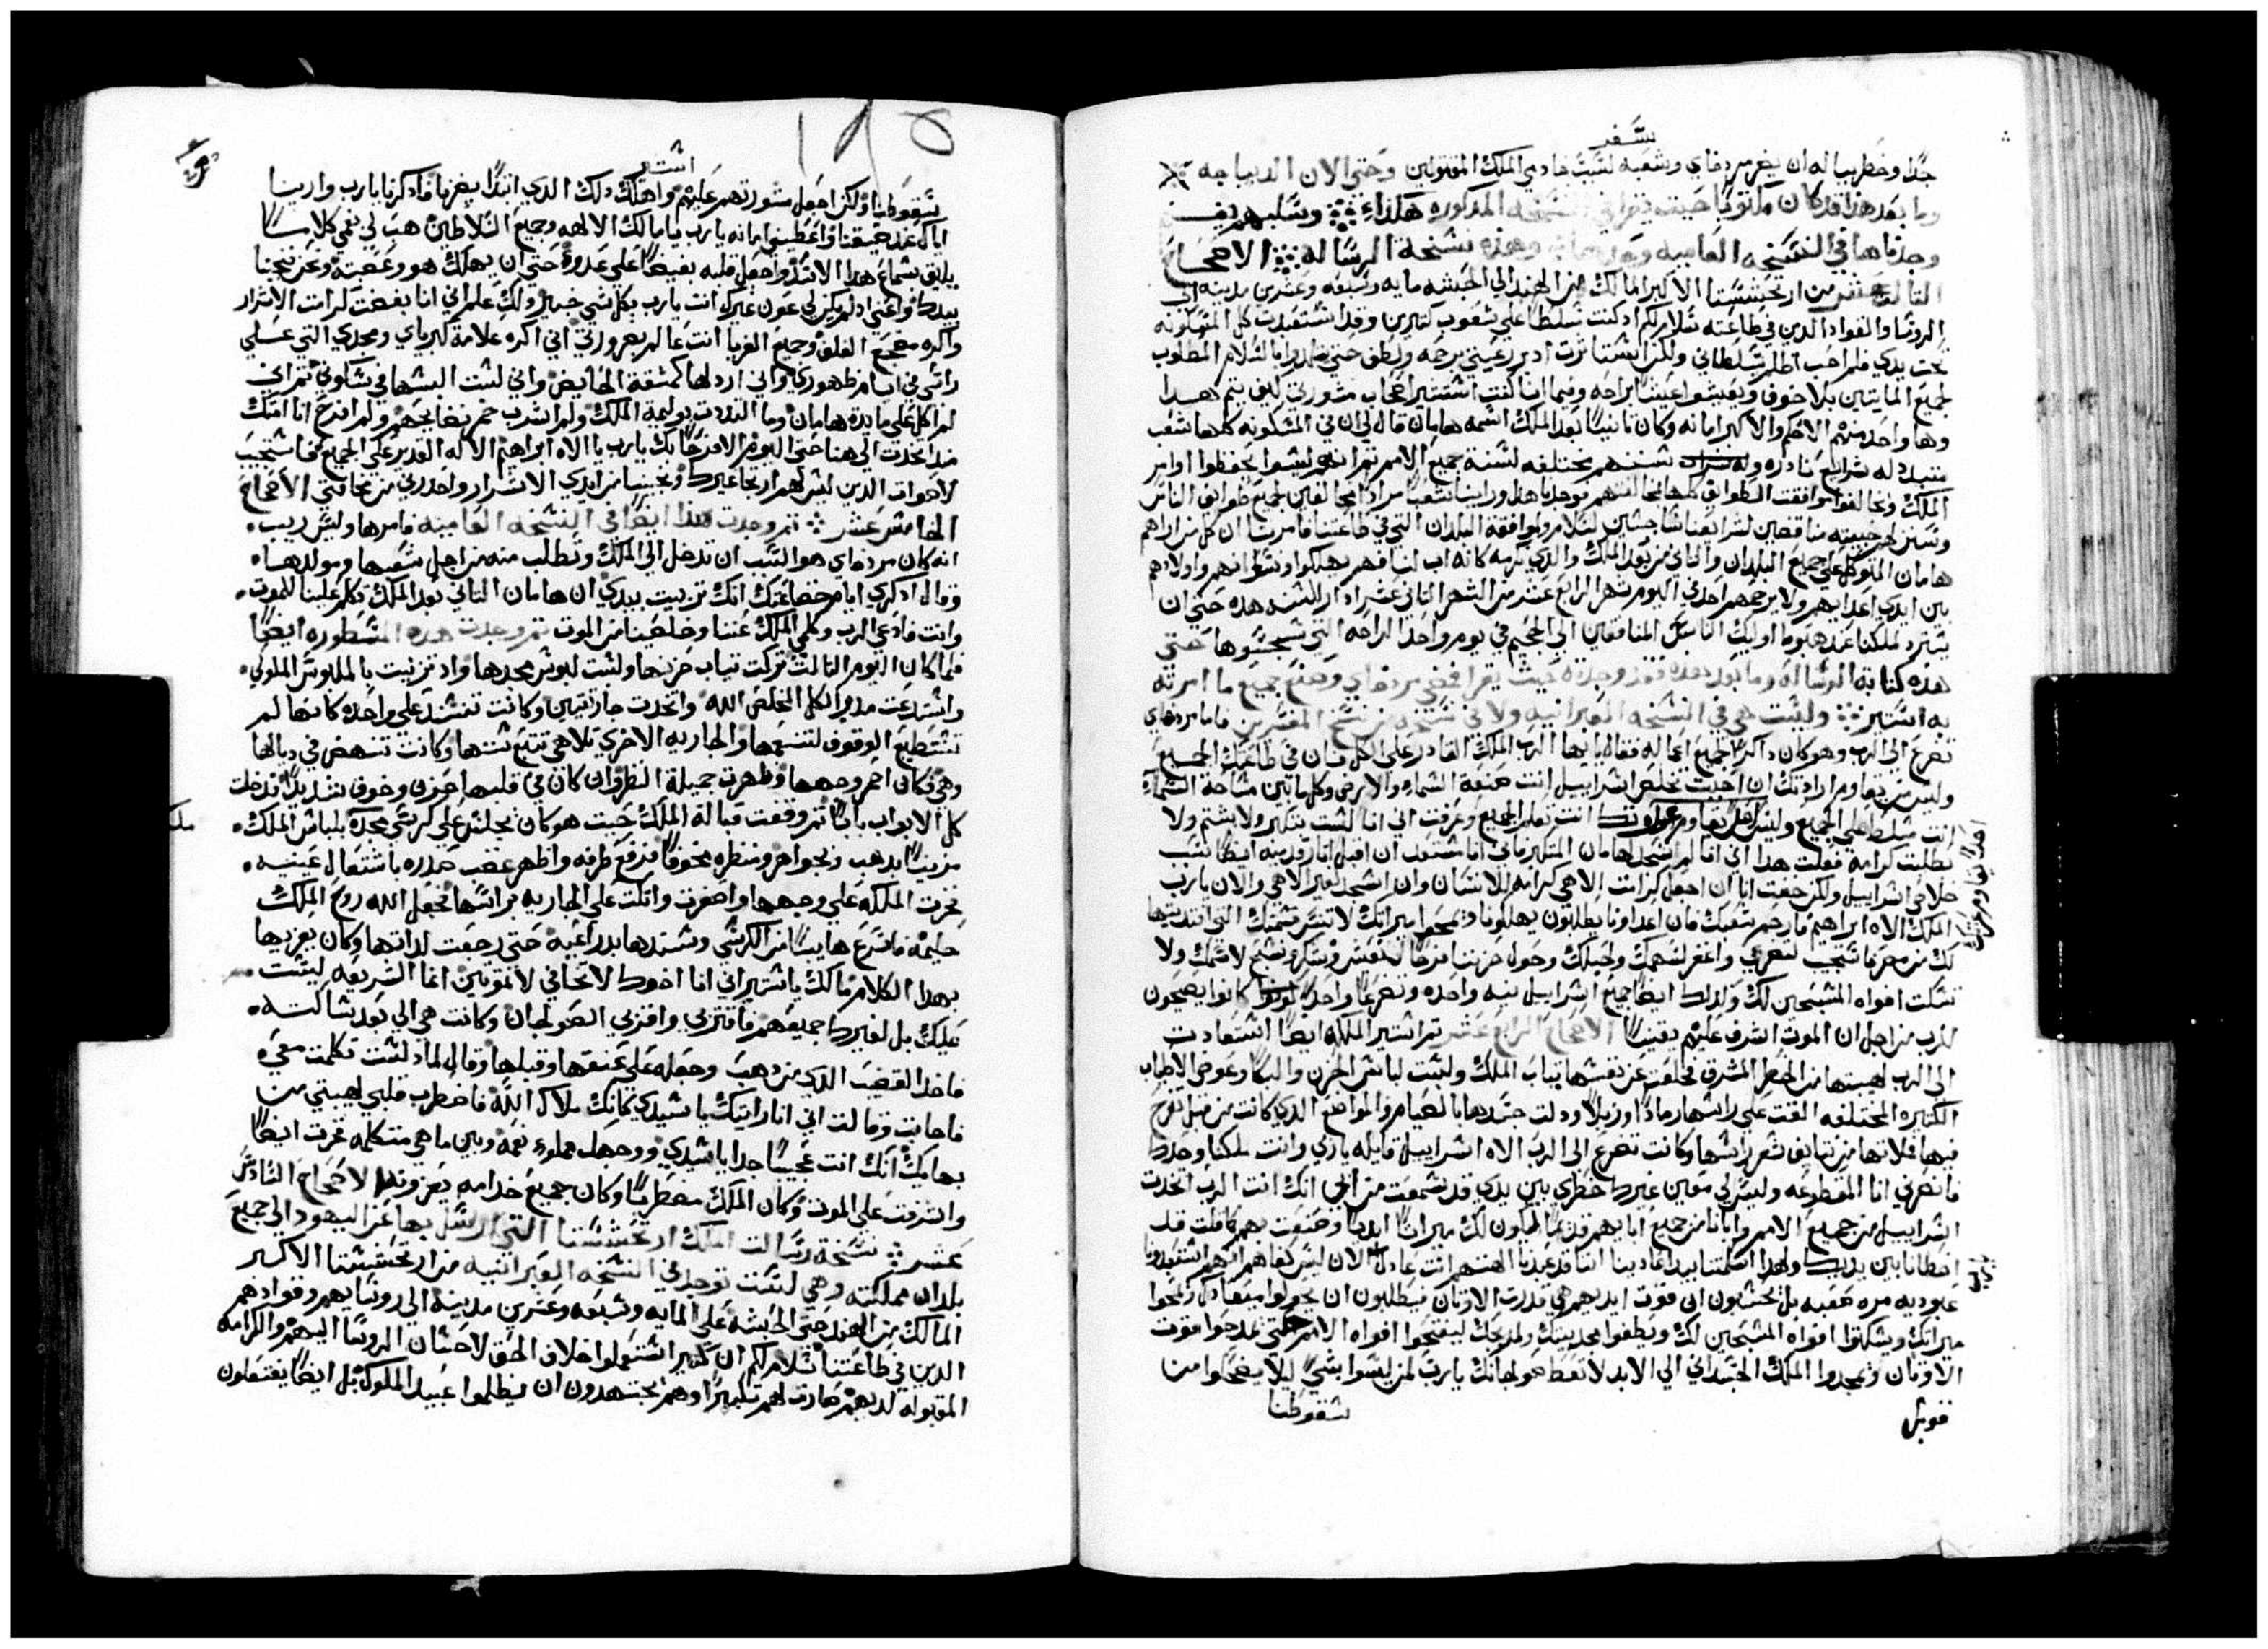 سفر
جدًا وخطر بباله ان يضر مردخاي وشعبه لسبب خادمي الملك المقتولين وحتى الان الديباجه
وما بعد هذا قد كان مكتوبًا حيث يقرا في النسخه المذكوره هكذا وسلبهم
وجدناها في النسخه العاميه وهذه نسخة الرساله الاصحاح
الثالث عشر من ارتحششتا الاكبر المالك من الهند الي الحبشه مايه وسبعه وعشرين مدينه الي
الروسا والقواد الذين في طاعته سلام لكم اذ كنت تسلط علي شعوب كثيرين وقد استعبدت كل المسكونه
تحت يدي فلم احب اظلم بسلطاني ولكن اذ برعيتي برحمه ولطف حتي بالسلام المطلوب
لجميع المايتين بلا خوف ويعيشوا عيشا براحه وفيما انا كنت استشير اصحاب مشورتي كيف يتم هذا
وها واحد منهم الاحكم والاكبر امانه وكان ثانيا بعد الملك اسمه هامان قال لي ان في المسكونه كلها شعب
متبدد له شرايع نادره وله سنن مختلفه لسنة جميع الامم ثم انهم ليسوا يحفظوا اوامر
الملك ويخالفوا موافقت الطوايف كلها فوجدنا هذا وراينا شعبا مرادا مخالفين لجميع طوايف الناس
مناقضين لشرايعنا لسلام وموافقة البلدان التي في طاعتنا فامرنا ان كل من اراهم
هامان المتوكل علي جميع البلدان والثاني من بعد الملك والذي نكرمه كانه اب لنا فهم يهلكوا ونسوانهم واولادهم
بين ايدي اعدايهم ولا يرحمهم احد في اليوم شهر الرابع عشر من الشهر الثاني عشر اذار السنه هذه حتي ان
اوليك الناس المنافقين الي الجحيم في يوم واحد الراحه التي حتي
هذه كتابة الرساله وما بعد هذه فقد وجدته حيث يقرا فمضي مردخاي وصنع جميع ما امرته
به استير وليست هي في النسخه العبرانيه ولا في نسخه من نسخ المفسرين فاما مردخاي
تضرع الي الرب وهو كان ذاكرا لجميع اعماله فقال يا ايها الرب الملك القادر علي الكل فان في طاعتك الجميع
وليس من يقاوم ارادتك ان احببت تخلص اسراييل انت صنعة السماء والارض وكل ما بين مساحة السماء
انت مسلط علي الجميع وليس انت تعلم الجميع وعرفت اني انا لست بتكبر ولا بشتم ولا
بطلبت كرامة فعلت هذا اني انا لم اسجد لهامان المتكبر فاني انا مستعد ان اقبل اثار قدميه ايضا لسبب
خلاص اسراييل ولكن خفت انا ان اجعل كرامت الاهي كرامه للانسان وان اسجد لغير الاهي والان يا رب
الملك الاه ابراهيم فارحم شعبك فان اعداونا يطلبون يهلكونا ويمحوا ميراتك لا تنسي قسمتك التي افتديتها
لك من مصر فاستجيب لتضرعي واغفر لسهمك ولحبلك وحول حزننا فرحا لنعيش ونشكر ونسبح لاسمك ولا
تسكت افواه المسبحين لك وكذلك ايضا جميع اسراييل بنيه واحده وتضرعا واحدا كانوا يصيحون
للرب من اجل ان الموت اشرف عليهم يقينا الاصحاح الرابع عشر ثم استير الملكه ايضا استعادت
الي الرب لهيبتها من الخطر المشرف فخلعت عن نفسها تياب الملك ولبست لباس الحزن والبكا وعوض الاطياب
الكثيره المختلفه القت علي راسها رمادا وزبلا ودلت جسدها بالصيام والمواضع الذي كانت من قبل تفرح
فيها ملاتها من نتايف شعر راسها وكانت تضرع الي الرب الاه اسراييل قايله يا ربي وانت ملكنا وحدك
فانصرني انا المقطوعه وليس لي معين غيرك خطري بين يدي قد سمعت من ابي انك انت الرب اتخدت
اسراييل من جميع الامم وابانا من جميع ابايهم قديما ليكون لك ميراثا ابديا وصنعت بهم كما قلت قد
اخطانا بين يديك ولهذا اسلمتنا بيد اعادينا اننا قد عبدنا الهتهم انت عادل الان ليس كفاهم انهم استعبدونا
عبوديه مره صعبه بل يحسبون ان قوت ايديهم هي قدرت الاوثان فيطلبون ان يحولوا ميعادك ويمحوا
ميراتك ويسكتوا افواه المسبحين لك ويطفوا مجد بيتك ومذبحك ليفتحوا افواه الامم حتى يمدحوا قوت
الاوثان ويمجدوا الملك الجسداني الي الابد لا تعط صولجانك يا رب لمن ليسوا بشي ليلا يضحكوا من
سقوطنا
قوبل
استير
١٩٥
سقوطنا ولكن اجعل مشورتهم عليهم واهلك ذلك الذي ابتدا يضرنا فاذكرنا يا رب وارينا
اياك عند ضيقتنا واعطيني امانه يا رب يا مالك الالهه وجميع السلاطين هب لي في فمي كلاما
يليق بسماع هذا الاسد واجعل قلبه بغيضا علي عدونا حتي ان يهلك هو وعصبته ونحن نجينا
بيدك واعني اذ لم يكن لي عون غيرك انت يا رب بكل شي خبير ولك علم اني انا بغضت كرامت الاشرار
واكره مضجع الغلف وجميع الغربا انت عالم بضرورتي اني اكره علامة كبرياي ومجدي التي علي
راسي في ايام ظهوري واني ارذلها كمثقة الحايض واني لست البسها في سكوتي ثم اني
لم اكل علي مايدة هامان وما التذدت بوليمة الملك ولم اشرب خمر نضايحهم ولم افرح انا امتك
منذ اتخدت الي هنا حتي اليوم الا فرحا بك يا رب يا الاه ابراهيم الاله القدير علي الجميع فاستجيب
لاصوات الدين ليس لهم ارتجا غيرك ونجينا من ايدي الاشرار واحذرني من مخافتي الاصحاح
الخامس عشر ثم وجدت هذا ايضا في النسخه العاميه فامرها وليس ريب
انه كان مردخاي هو السبب ان تدخل الي الملك وتطلب منه من اجل شعبها ومولدها
وقال اذكري ايام خضاعتك انك تربيت بيدي ان هامان الثاني بعد الملك تكلم علينا للموت
وانت فادعي الرب وكلمي الملك عننا وخلصينا من الموت ثم وجدت هذه المسطوره ايضا
فلما كان اليوم الثالث تركت تياب حزنها ولبست لبوس مجدها واذ تزينت بالملبوس الملوكي
واستدعت مدبر الكل المخلص الله واتخدت جاريتين وكانت تستند علي واحده كانها لم
تستطيع الوقوف لتنعمها والجاريه الاخري تلاهي تتبع ستها وكانت تنهض في ديالها
وهي فكان احمر وجهها وظهرت جميلة النظر وان كان في قلبها حزن وخوف شديدا فدخلت
كل الابواب بابا ثم وقفت قبالة الملك حيث هو كان يجلس علي كرسي مجده بلباس الملك
مزينا بدهب وبجواهر ومنظره مخوفا فرفع طرفه واظهر غضب صدره باشتعال عينيه
فخرت الملكه علي وجهها واصفرت واتكت علي الجاريه براسها فجعل الله روح الملك
حليمة فاسرع هايبا من الكرسي وسندها بدراعيه حتي رجعت لداتها وكان يعزيها
بهذا الكلام مالك يا استير اني انا اخوك لا تخافي لا تموتين انما الشريعه ليست
عليك بل لغيرك جميعهم فاقتربي واقربي الصولجان وكانت هي الي بعد ساكته
فاخد القضيب الذي من دهب وجعله علي عنقها وقبلها وقال لماذا لست تكلمت معي
فاجابت وقالت اني انا رايتك يا سيدي كانك ملاك الله فاضطرب قلبي لهيبتي من
بهامك انك انت عجيبا جدا يا سيدي ووجهك مملوء نعمة وبين ما هي متكلمه فخرت ايضا
واشرفت علي الموت وكان الملك مضطربا وكان جميع خدامه يعزونها الاصحاح السادس
عشر نسخة رسالت الملك ارتحششتا التي ارسل بها عن اليهود الي جميع
بلدان مملكته وهي ليست توجد في النسخه العبرانيه من ارتحششتا الاكبر
المالك من الهند حتي الحبشه علي المايه وسبعه وعشرين مدينه الي روسايهم وقوادهم
الدين في طاعتنا سلام لكم ان كثيرا استعملوا خلاف الحق لاحسان الروسا اليهم والكرامه
المقبوله لديهم صارت لهم تكبيرا وهم يجتهدون ان يظلموا عبيد الملوك بل ايضا يفتعلون